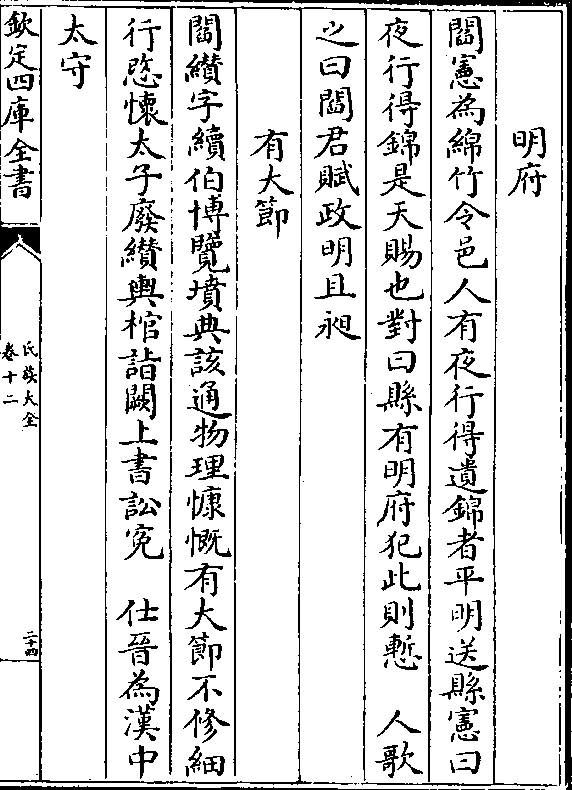 明府
閻憲為綿竹令邑人有夜行得遺錦者平明送縣憲曰
夜行得錦是天賜也對曰縣有明府犯此則慙　人歌
之曰閻君賦政明且昶
有大節
閻纘字續伯博覽墳典該通物理慷慨有大節不修細
行愍懷太子廢纘輿棺詣闕上書訟寃　仕晉為漢中
太守
欽定四庫全書
氏族大全
卷十二
二十四